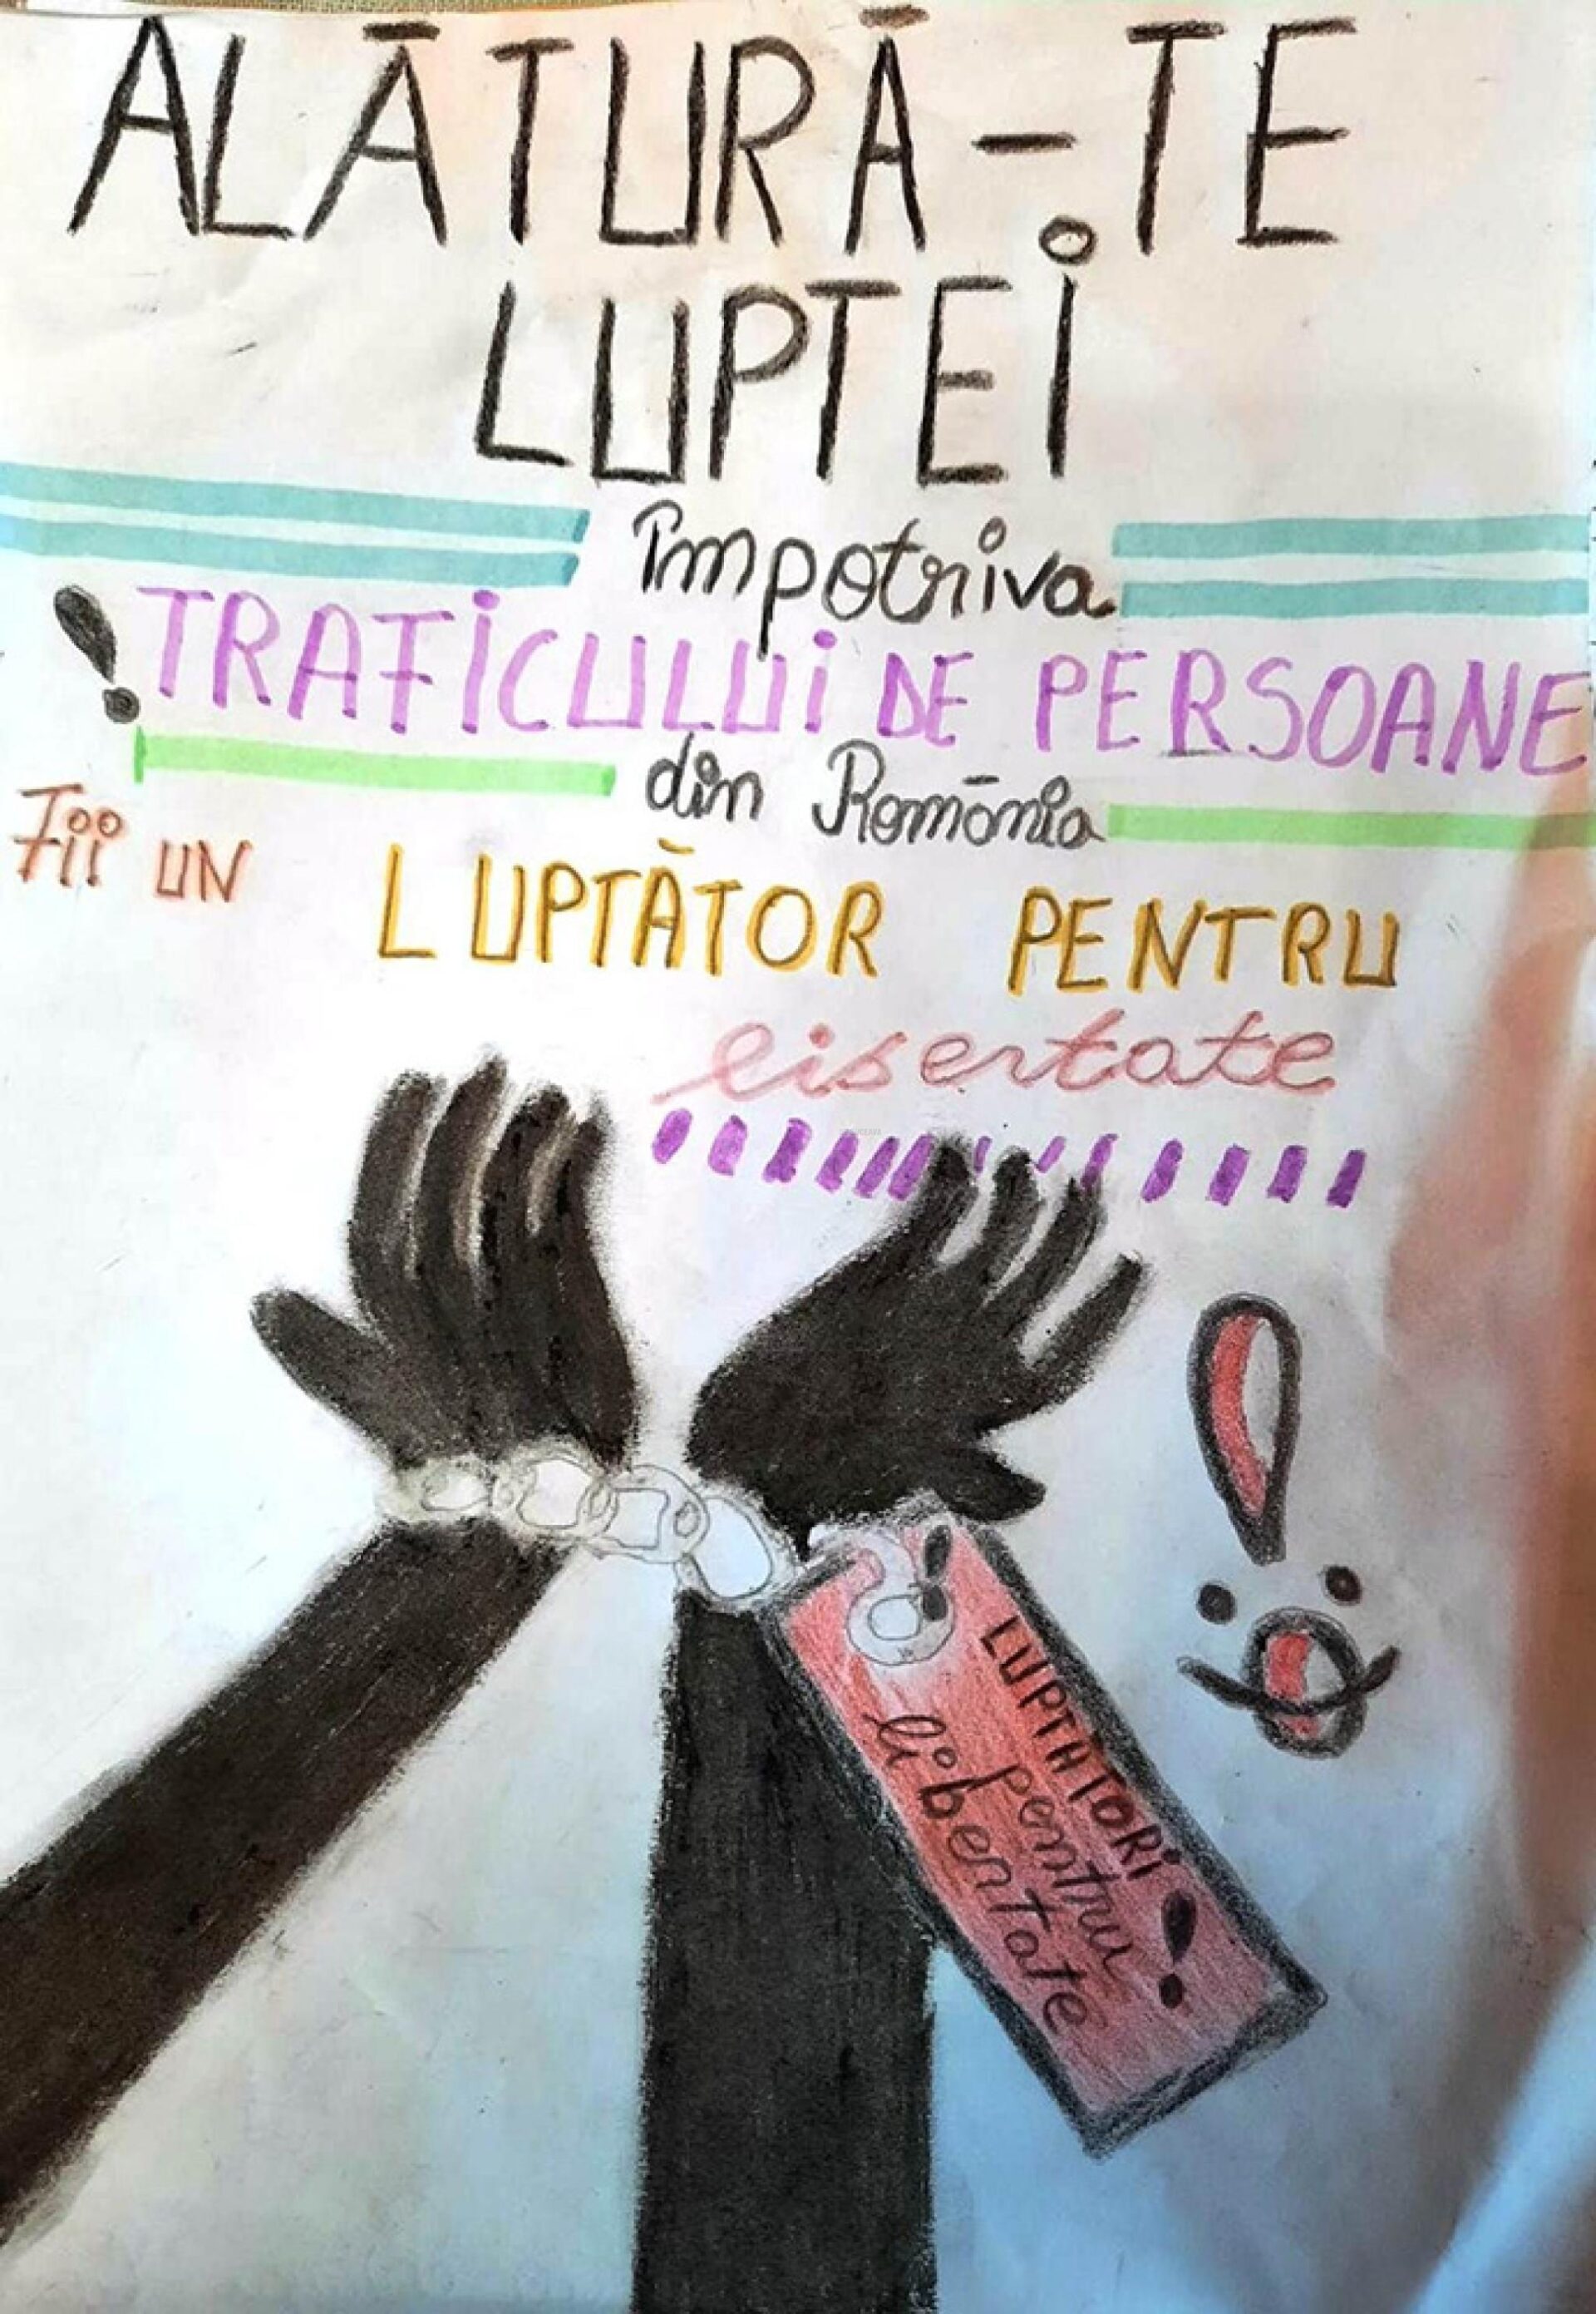 ALĂTURĂ-TE
LUPTEI
împotriva
! TRAFICULUI DE PERSOANE
din România
FII UN LUPTĂTOR PENTRU
libertate
! LUPTATORI
pentru
libertate !